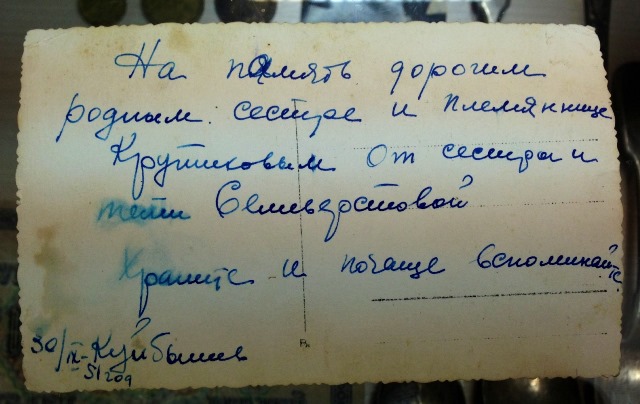 На память дорогим
родным: сестре и племяннице
Крутиковым От сестры и
тёти Селиверстовой
Храните и почаще вспоминайте
30/IX- Куйбышев
51 год